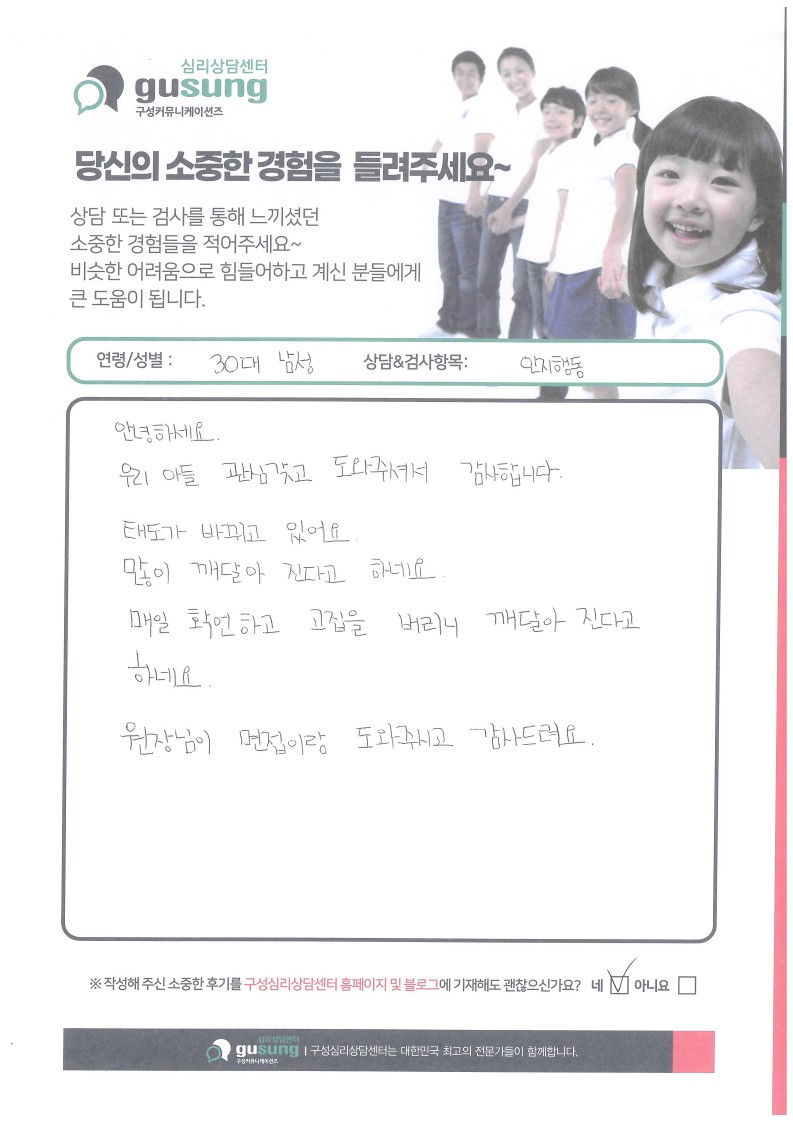 심리상담센터
gusung
구성커뮤니케이션즈
당신의 소중한 경험을 들려주세요~
상담 또는 검사를 통해 느끼셨던
소중한 경험들을 적어주세요~
비슷한 어려움으로 힘들어하고 계신 분들에게
큰 도움이 됩니다.
연령/성별 : 30대 남성 상담&검사항목: 인지행동
안녕하세요.
우리 아들 관심갖고 도와주셔서 감사합니다.
태도가 바뀌고 있어요.
많이 깨달아 진다고 하네요.
매일 확언하고 고집을 버리니 깨달아 진다고
하네요.
원장님이 면접이랑 도와주시고 감사드려요.
※ 작성해 주신 소중한 후기를 구성심리상담센터 홈페이지 및 블로그에 기재해도 괜찮으신가요? 네 아니요
심리상담센터
gusung
구성커뮤니케이션즈
구성심리상담센터는 대한민국 최고의 전문가들이 함께합니다.